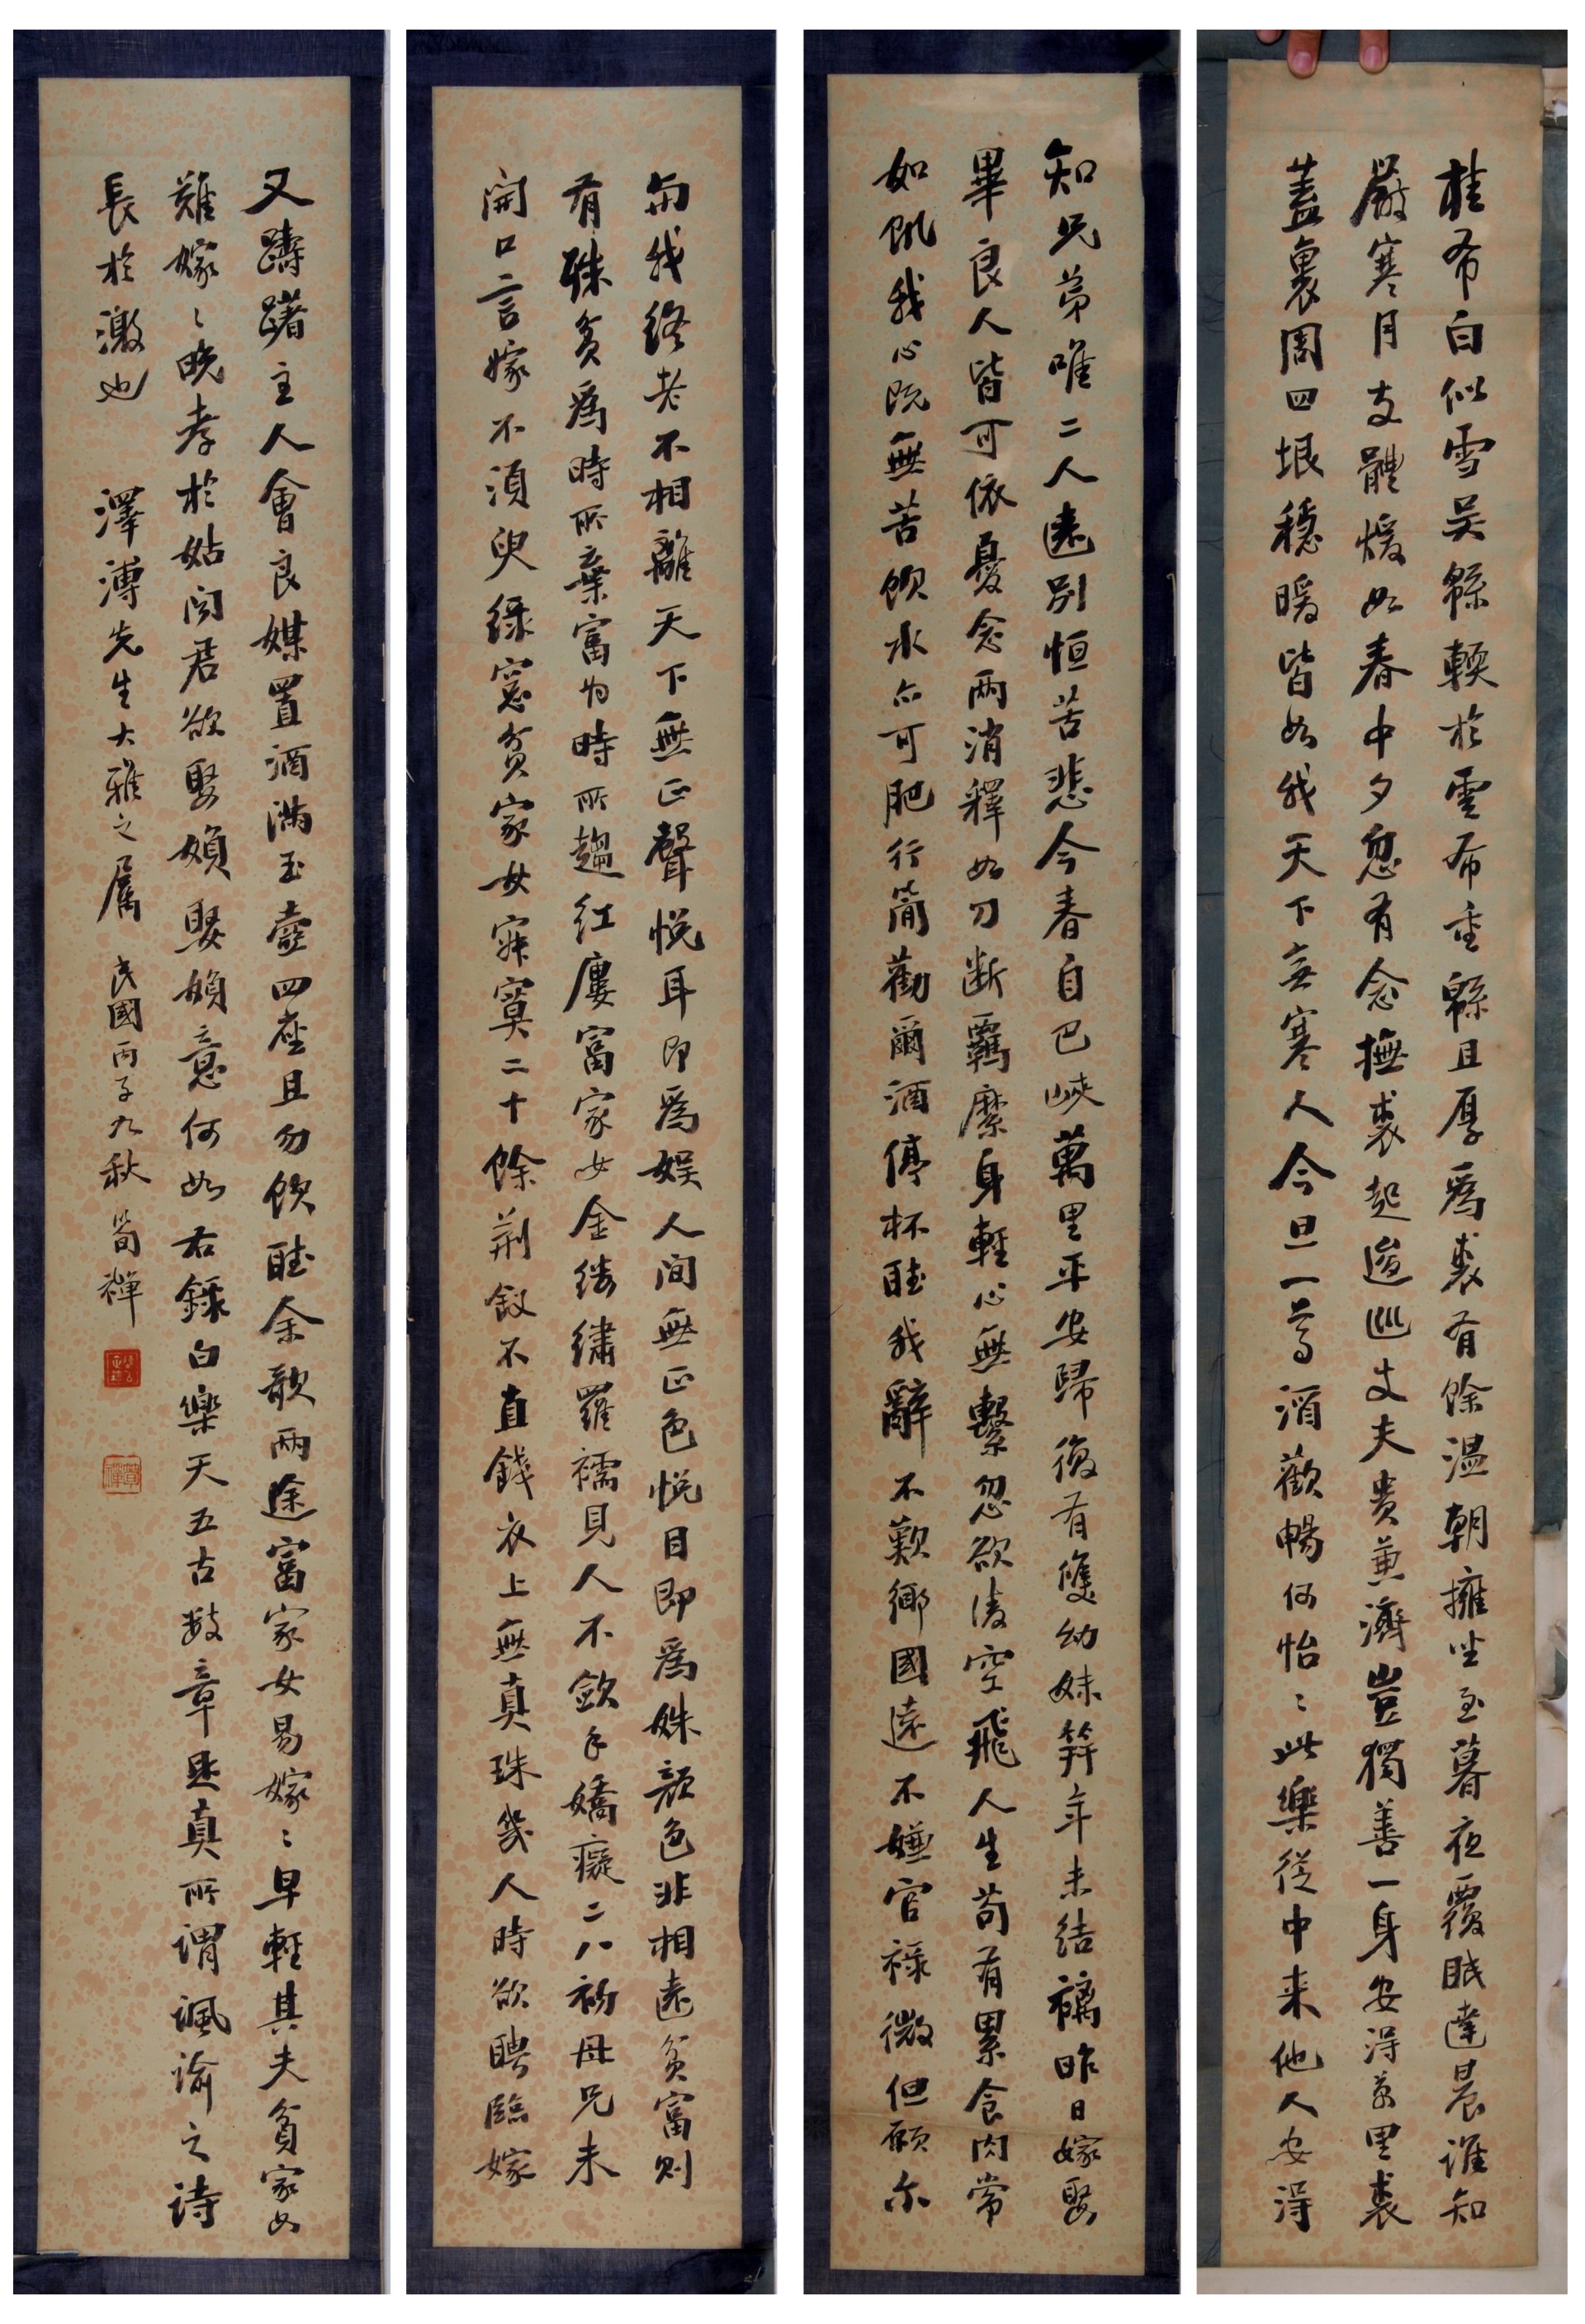 桂布白似雪吴緜輭於雲布重緜且厚為裘有餘温朝擁坐至暮夜覆眠達晨誰知
嚴寒月支體煖如春中夕忽有念撫裘起逡巡丈夫貴兼濟豈獨善一身安得萬里裘
蓋裏周四垠穩暖皆如我天下無寒人今旦一尊酒歡暢何怡〻此樂從中来他人安得
知兄弟唯二人遠别恒苦悲今春自巴峽萬里平安歸復有雙幼妹笄年未結褵昨日嫁娶
畢良人皆可依憂念兩消釋如刀断羈縻身輕心無繫忽欲凌空飛人生苟有累食肉常
如飢我心既無苦飲水亦可肥行簡勸爾酒停杯聽我辭不歎鄉國遠不嫌官禄微但願尔
與我終老不相離天下無正聲悦耳即為娱人間無正色悦目即為姝顔色非相遠貧富則
有殊貧為時所棄富為時所趨紅廔富家女金縷繡羅襦見人不斂手嬌癡二八初母兄未
開口言嫁不須臾緑窓貧家女寂寞二十餘荆釵不直錢衣上無真珠幾人時欲聘臨嫁
又躊躇主人會良媒置酒滿玉壺四座且勿飲聽余歌兩途富家女易嫁〻早輕其夫貧家女
難嫁〻晩孝於姑聞君欲娶婦娶婦意何如右録白樂天五古數章是真所謂諷諭之詩
長於激也 澤溥先生大雅之屬 民國丙子九秋 荀禪